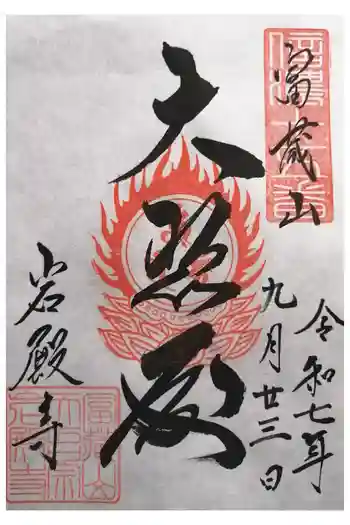 富蔵山
令和七年
九月廿三日
大悲殿
岩殿寺